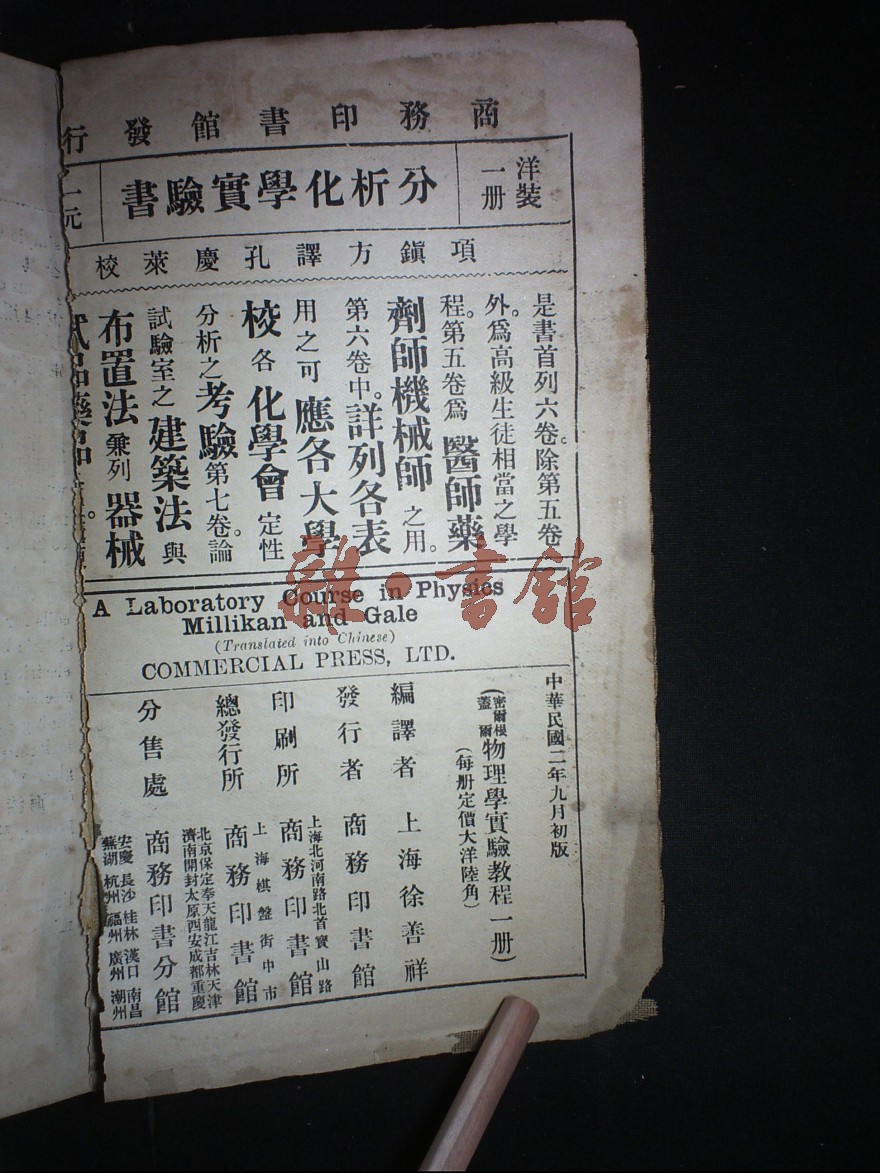 商務印書館發行
洋裝
一册
分析化學實驗書
項鎮方譯孔慶萊校
是書首列六卷。除第五卷
外。爲高級生徒相當之學
程。第五卷爲醫師藥
劑師機械師之用。
第六卷中。詳列各表
用之可應各大學
校各化學會定性
分析之考驗。第七卷論
試驗室之建築法與
布置法兼列器械
A Laboratory Course in Physics
Millikan and Gale
(Translated into Chinese)
COMMERCIAL PRESS, LTD.
中華民國二年九月初版
(密爾根蓋爾物理學實驗教程一册)
(每册定價大洋陸角)
編譯者 上海徐善祥
發行者 商務印書館
上海北河南路北首寶山路
印刷所 商務印書館
上海棋盤街中市
總發行所 商務印書館
北京保定奉天龍江吉林天津
濟南開封太原西安成都重慶
分售處 商務印書分館
安慶長沙桂林漢口南昌
蕪湖杭州福州廣州潮州
雜·書館